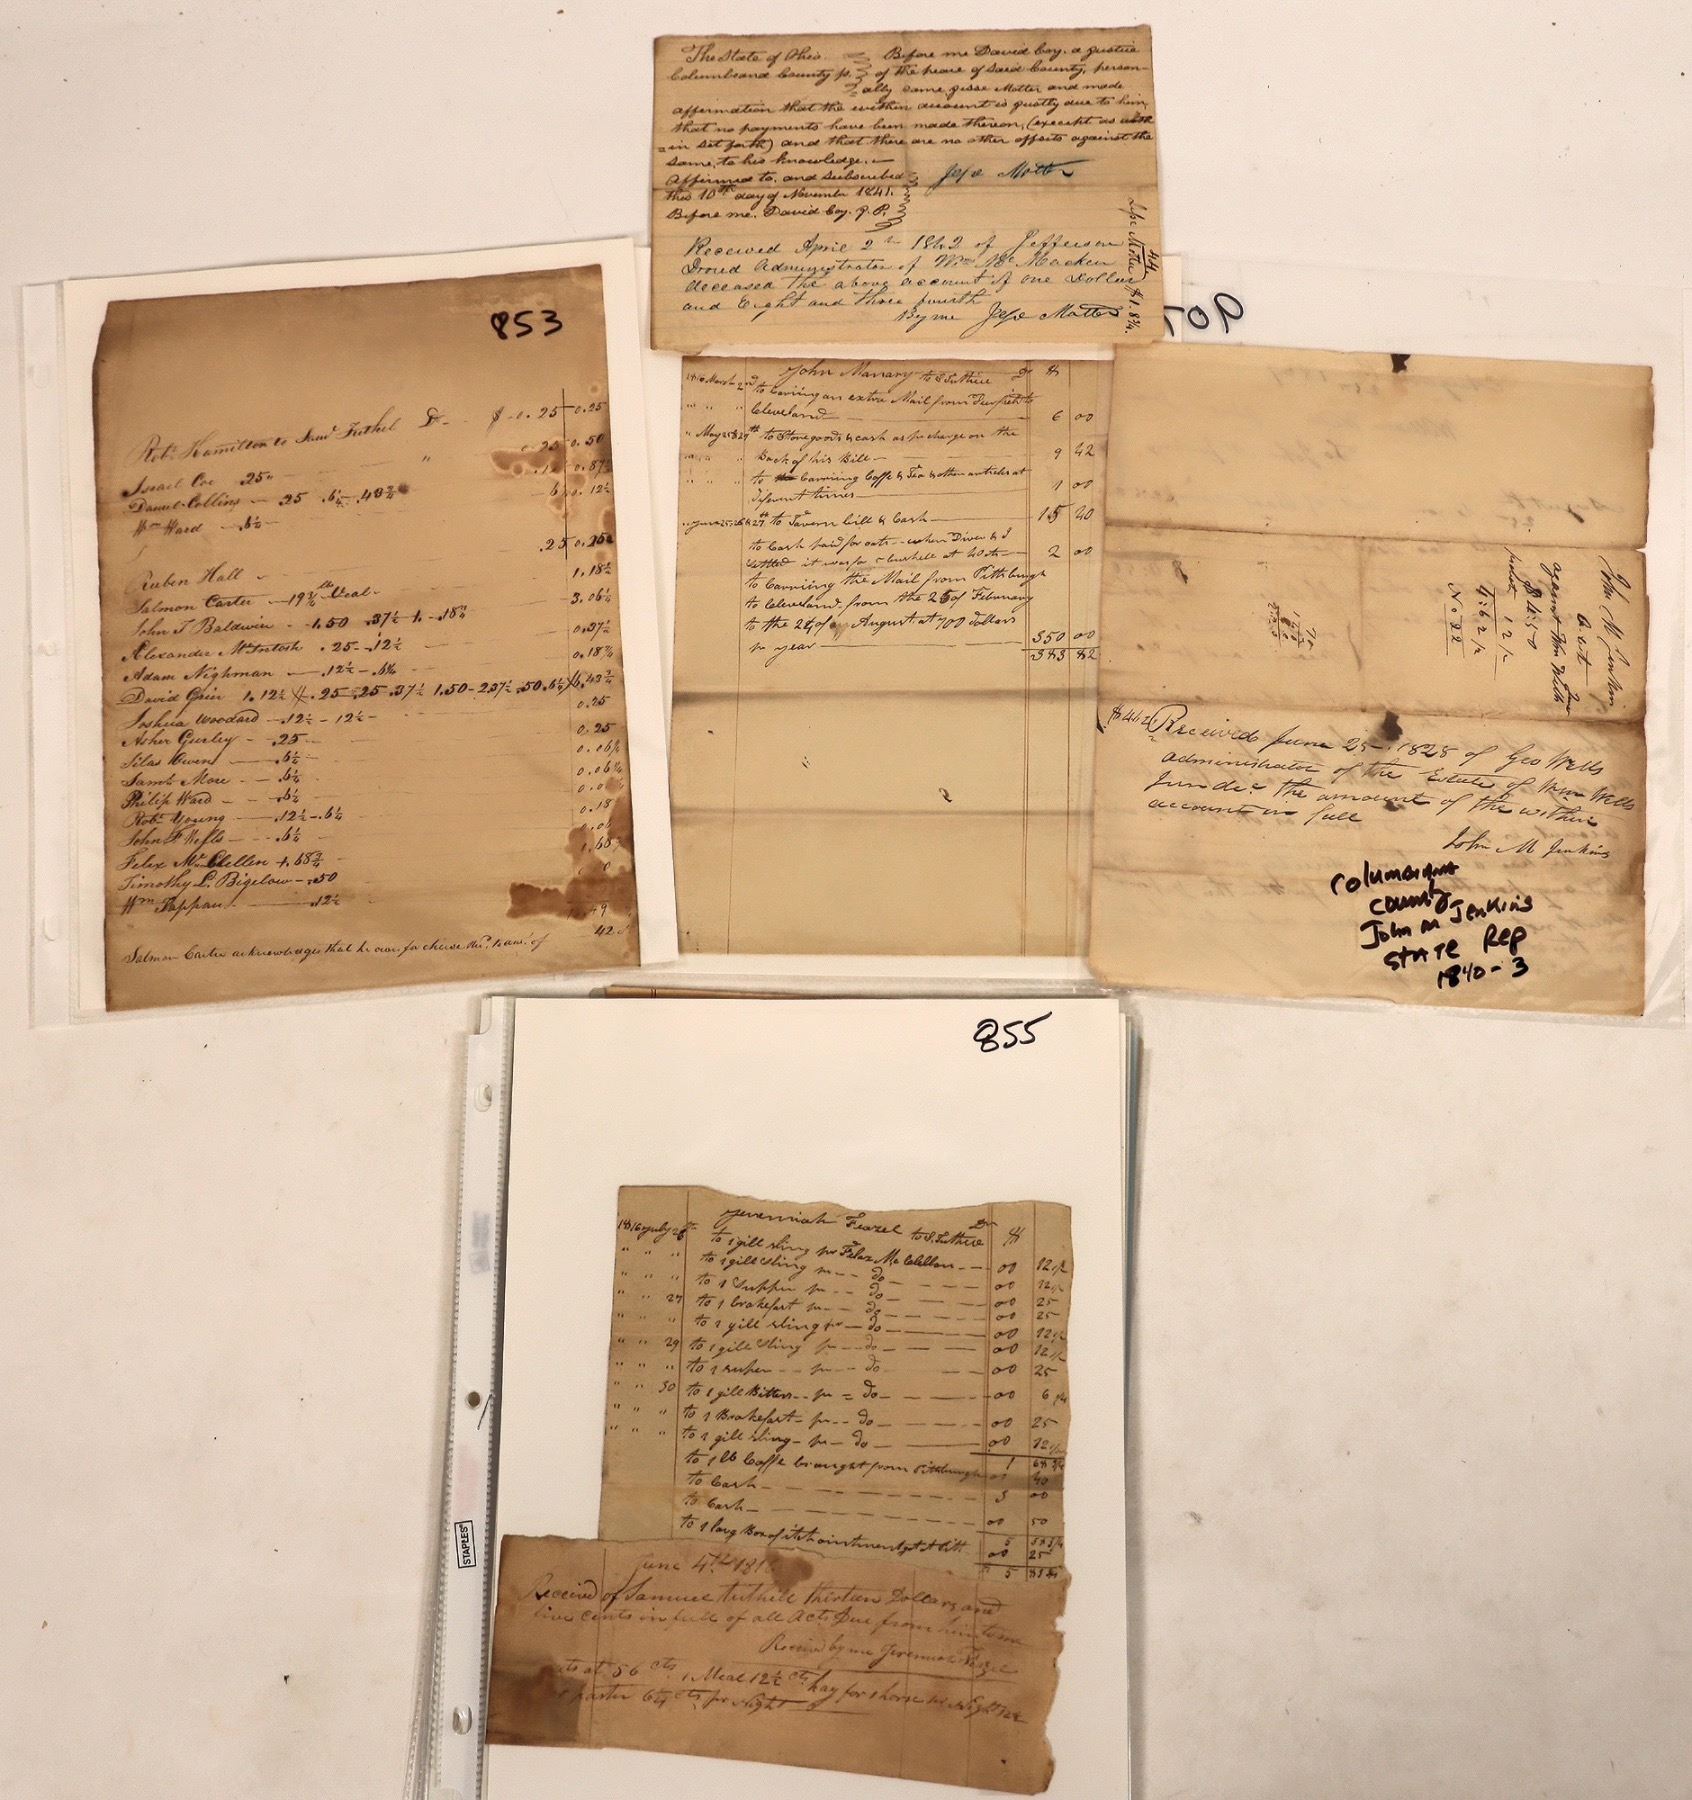 The State of Ohio
Columbiana County ss.
Before me David Coy. a justice
of the peace of said County, person-
ally came Jesse Motter and made
affirmation that the within account is justly due to him,
that no payments have been made thereon, (except as with
=in set forth) and that there are no other offsets against the
same, to his knowledge.
Affirmed to, and subscribed
this 10th day of November 1841.
Before me. David Coy. J. P.
Jesse Motter
Received April 2 1842 of Jefferson
Administrator of Wm McMacken
deceased the above account of one Dollar
and Eight and three fourth
By me Jesse Motter
44
Jesse Motter
$1.8¾.
853
Robt Hamilton to Saml Tuthel Dr $ - 0.25 0.25
Israel Coe .25 0.25 0.50
Daniel Collins .25 .6¼ .43¾ 0.87½
Wm Ward .6¼ 0.12½
.25 0.25
Ruben Hall
Salmon Carter 19½ lb Veal 1.18½
John T Baldwin 1.50 .37½ 1. .18¾ 3.06¼
Alexander McIntosh .25 .12½ 0.37½
Adam Nighman .12½ .6¼ 0.18¾
David Grier 1.12½ .25 .25 .37½ 1.50 2.37½ .50 .6¼ 6.43¾
Joshua Woodard .12½ 12½ 0.25
Asher Gurley .25 0.25
Silas Owen .6¼ 0.06¼
Saml More .6¼ 0.06¼
Philip Ward .6¼
Robt Young .12½ .6¼ 0.18
John F Wells .6¼
Felix McClellen 1.68¾
Timothy L. Bigelow .50
Wm Tappan .12½
Salmon Carter acknowledges that he owes for cheese
John Manary to S Tuthill Dr $
1816 March 2nd to Carriing an extra Mail from
Cleveland 6 00
" May to Store goods & cash as pr charge on the
Back of his Bill 9 42
to Carriing Coffe & Tea & other articles at
diferent times 1 00
" June 25, 26 & 27th to Tavern bill & Cash 15 40
to Cash paid for oats when Diver & I
settled it was for 5 bushels at 40 cts 2 00
to Carriing the Mail from Pittsburgh
to Cleveland from the 25 of February
to the 24 of August at 700 dollars
pr year 350 00
383 82
John M Jenkins
acct
against Wm Wells
$4:50
12½
4:62½
No 22
$4.62½ Received June 25 1828 of Geo Wells
administrator of the Estate of Wm Wells
Jun dec the amount of the within
account in full
John M Jenkins
Columbiana
County
John M Jenkins
State Rep
1840-3
855
Jeremiah Feazel to S. Tuthill Dr $
1816 July 26th to 1 gill sling pr Felax McClellan 00 12½
" " " to 1 gill sling pr do 00 12½
" " " to 1 Supper pr do 00 25
" " 27 to 1 brakefast pr do 00 25
" " " to 1 gill sling pr do 00 12½
" " 29 to 1 gill sling pr do 00 12½
" " " to 1 super pr do 00 25
" " 30 to 1 gill Bitters pr do 00 6¼
" " " to 1 Brakefast pr do 00 25
" " " to 1 gill sling pr do 00 12½
1 68¾
to 1 lb Coffe brought from Pittsburgh 40
to Cash 3 00
to Cash 00 50
5 58¾
to 1 Box of itch ointment 00 25
$ 5 83¾
June 4th 181
Received of Samuel Tuthill thirteen Dollars and
five cents in full of all Acts Due from him to me
Received by me Jeremiah Feazel
at 56 cts, 1 Meal 12½ cts hay for 1 horse pr Night
paster 6¼ cts pr Night
STAPLES